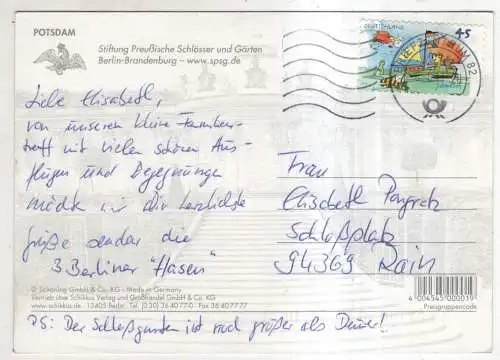 POTSDAM
Stiftung Preußische Schlösser und Gärten
Berlin-Brandenburg – www.spsg.de
DEUTSCHLAND
45
82
Liebe Elisabeth,
von unserem kleinen Familien-
treff mit vielen schönen Aus-
flügen und Begegnungen
möcht wir dir herzlichste
Grüße senden die
3 Berliner "Hasen"
PS: Der Schloßgarten ist noch größer als Deiner!
Frau
Elisabeth
Schloßplatz
94369 Rain
© Schöning GmbH & Co. KG · Made in Germany
Vertrieb über Schikkus Verlag und Großhandel GmbH & Co. KG
www.schikkus.de · 13405 Berlin · Tel. (0 30) 36 40 77-0 · Fax 36 40 77 77
4 004545 000019
Preisgruppencode